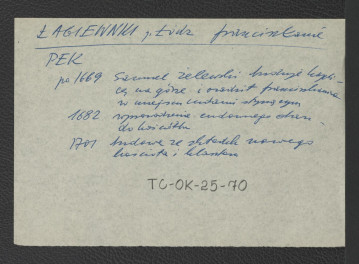 ŁAGIEWNIKI, Łódź franciszkanie
PEK
po 1669 Samuel Żelewski buduje kapli-
cę na górze i osadził franciszkanów
w miejscu cudami słynącym
1682 wprowadzenie cudownego obrazu
do kościółka
1701 budowa ze składek nowego
kościoła i klasztoru
TC-OK-25-70